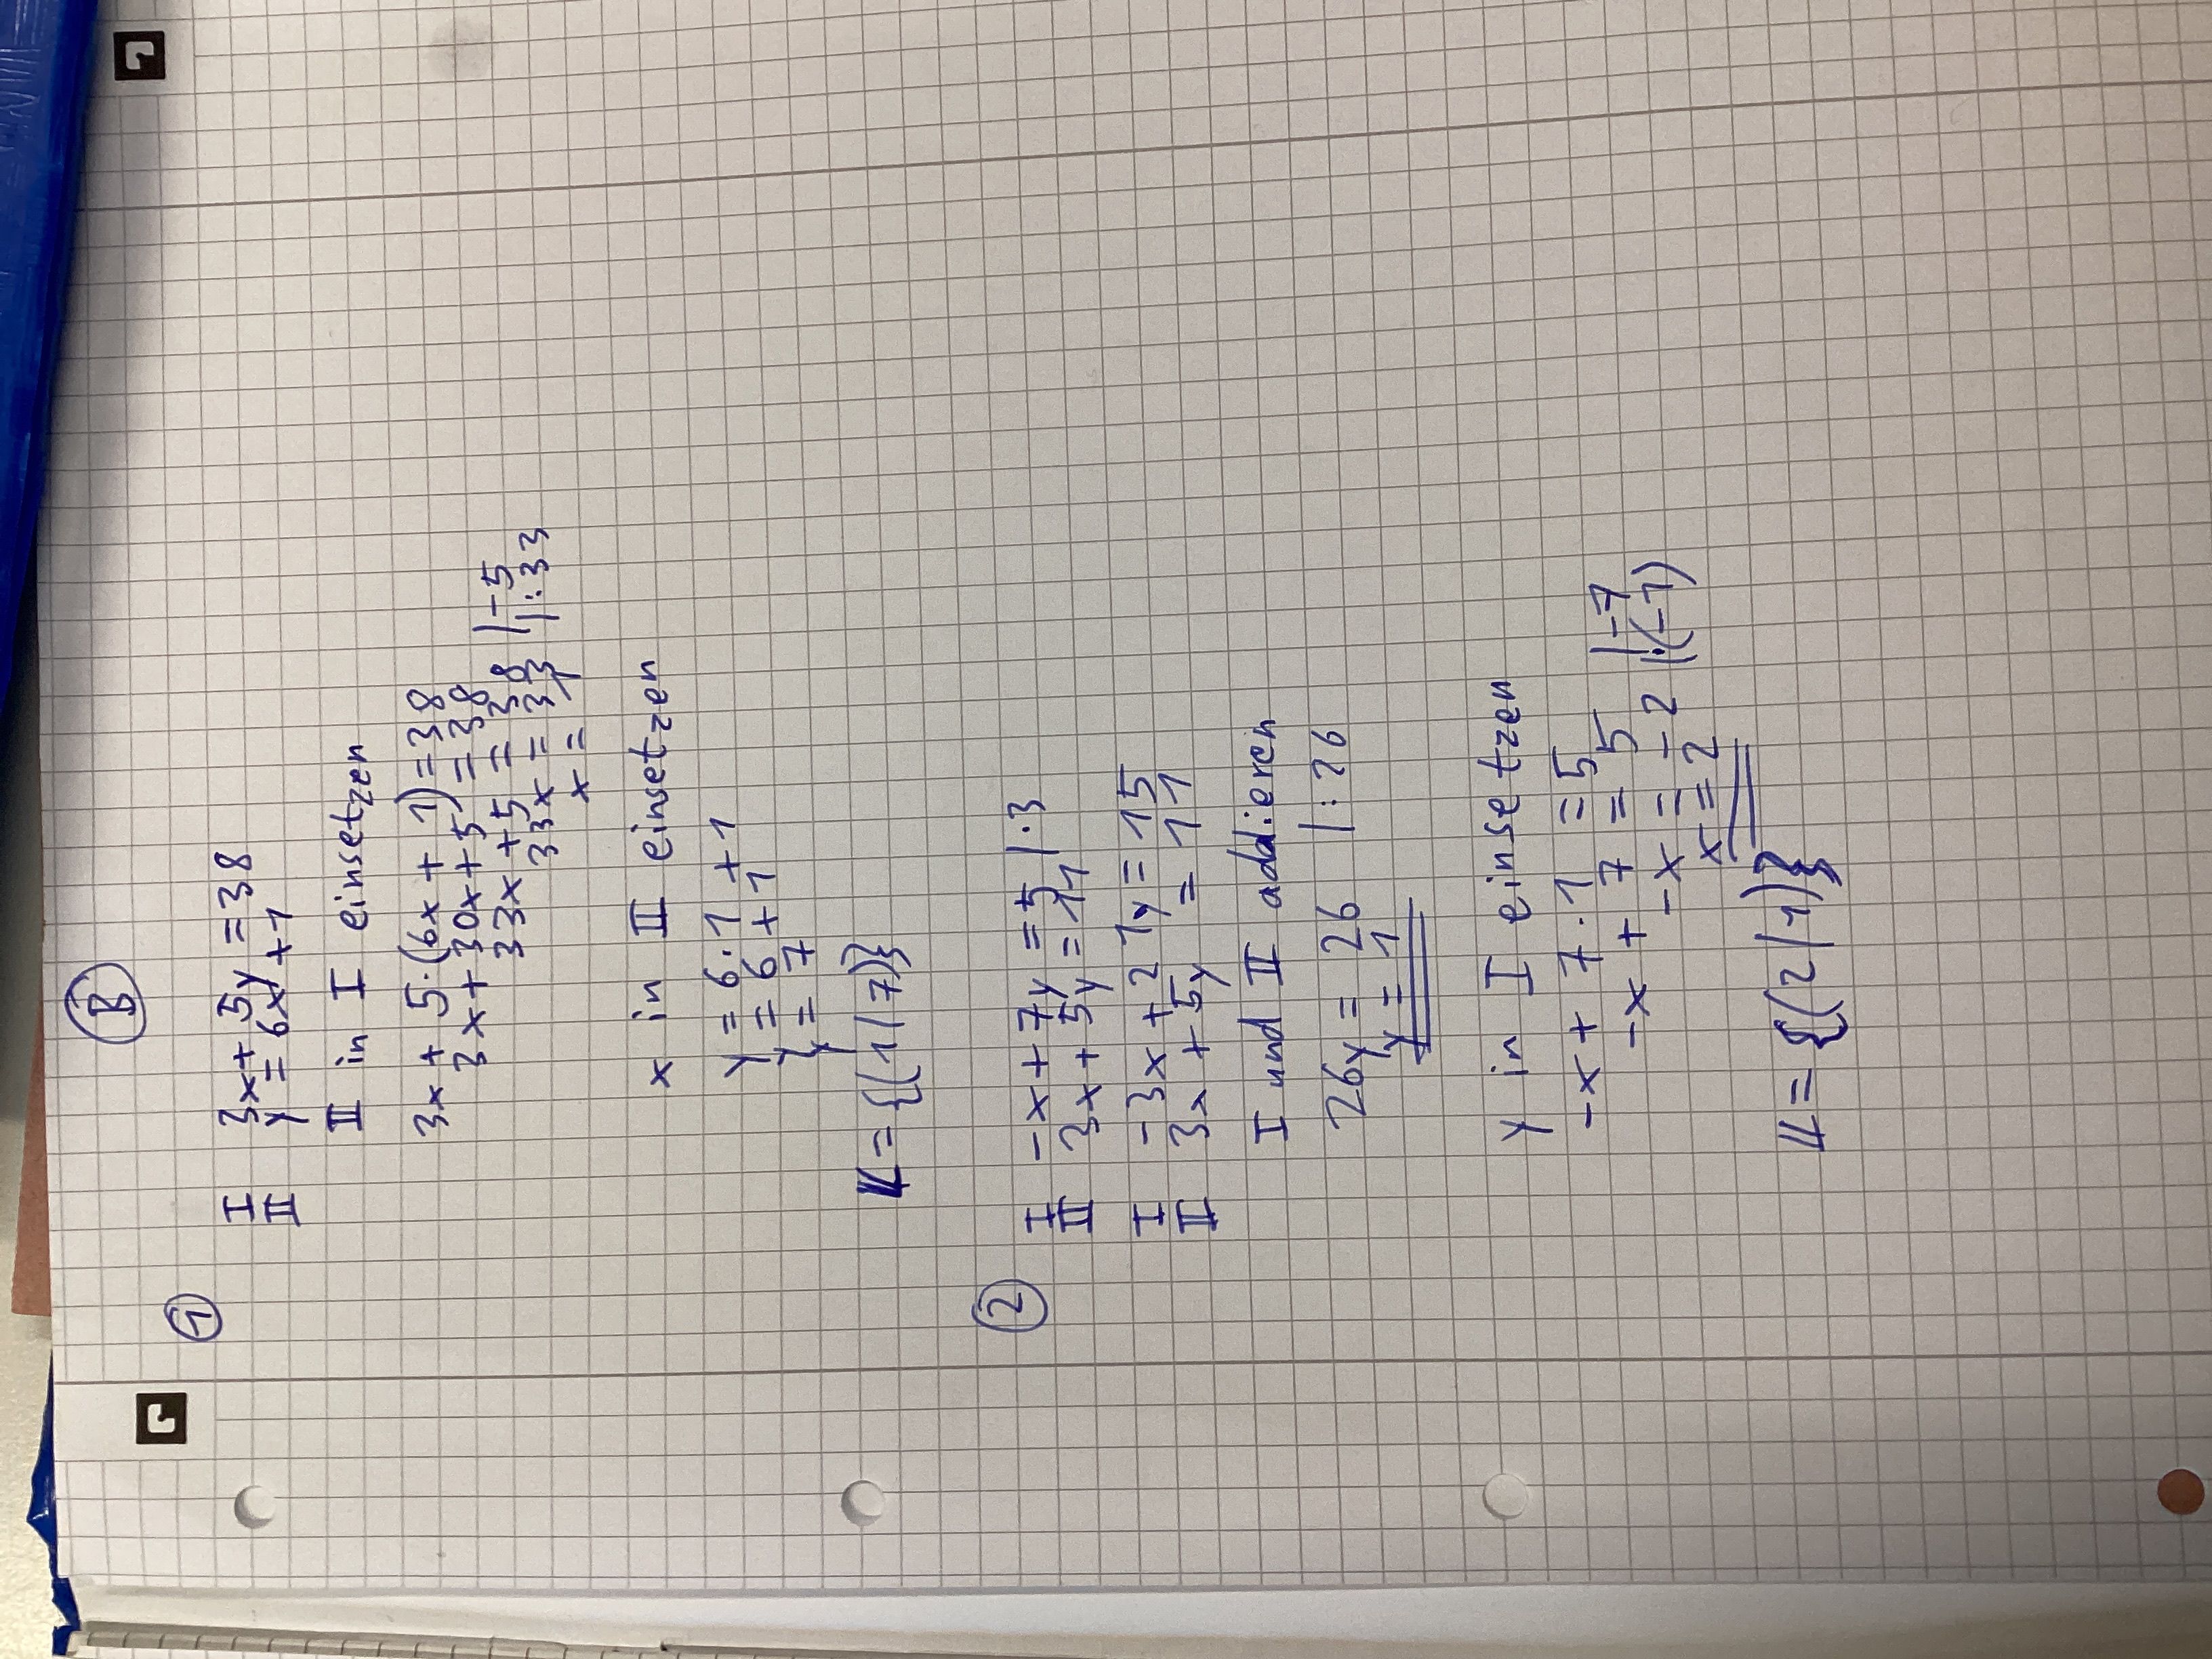 B
1
I 3x + 5y = 38
II y = 6x + 1
II in I einsetzen
3x + 5·(6x + 1) = 38
3x + 30x + 5 = 38
33x + 5 = 38 |-5
33x = 33 |:33
x = 1
x in II einsetzen
y = 6·1 + 1
y = 6 + 1
y = 7
L = {(1/7)}
2
I -x + 7y = 5 |·3
II 3x + 5y = 11
I -3x + 21y = 15
II 3x + 5y = 11
I und II addieren
26y = 26 |:26
y = 1
y in I einsetzen
-x + 7·1 = 5
-x + 7 = 5 |-7
-x = -2 |:(-1)
x = 2
L = {(2/1)}